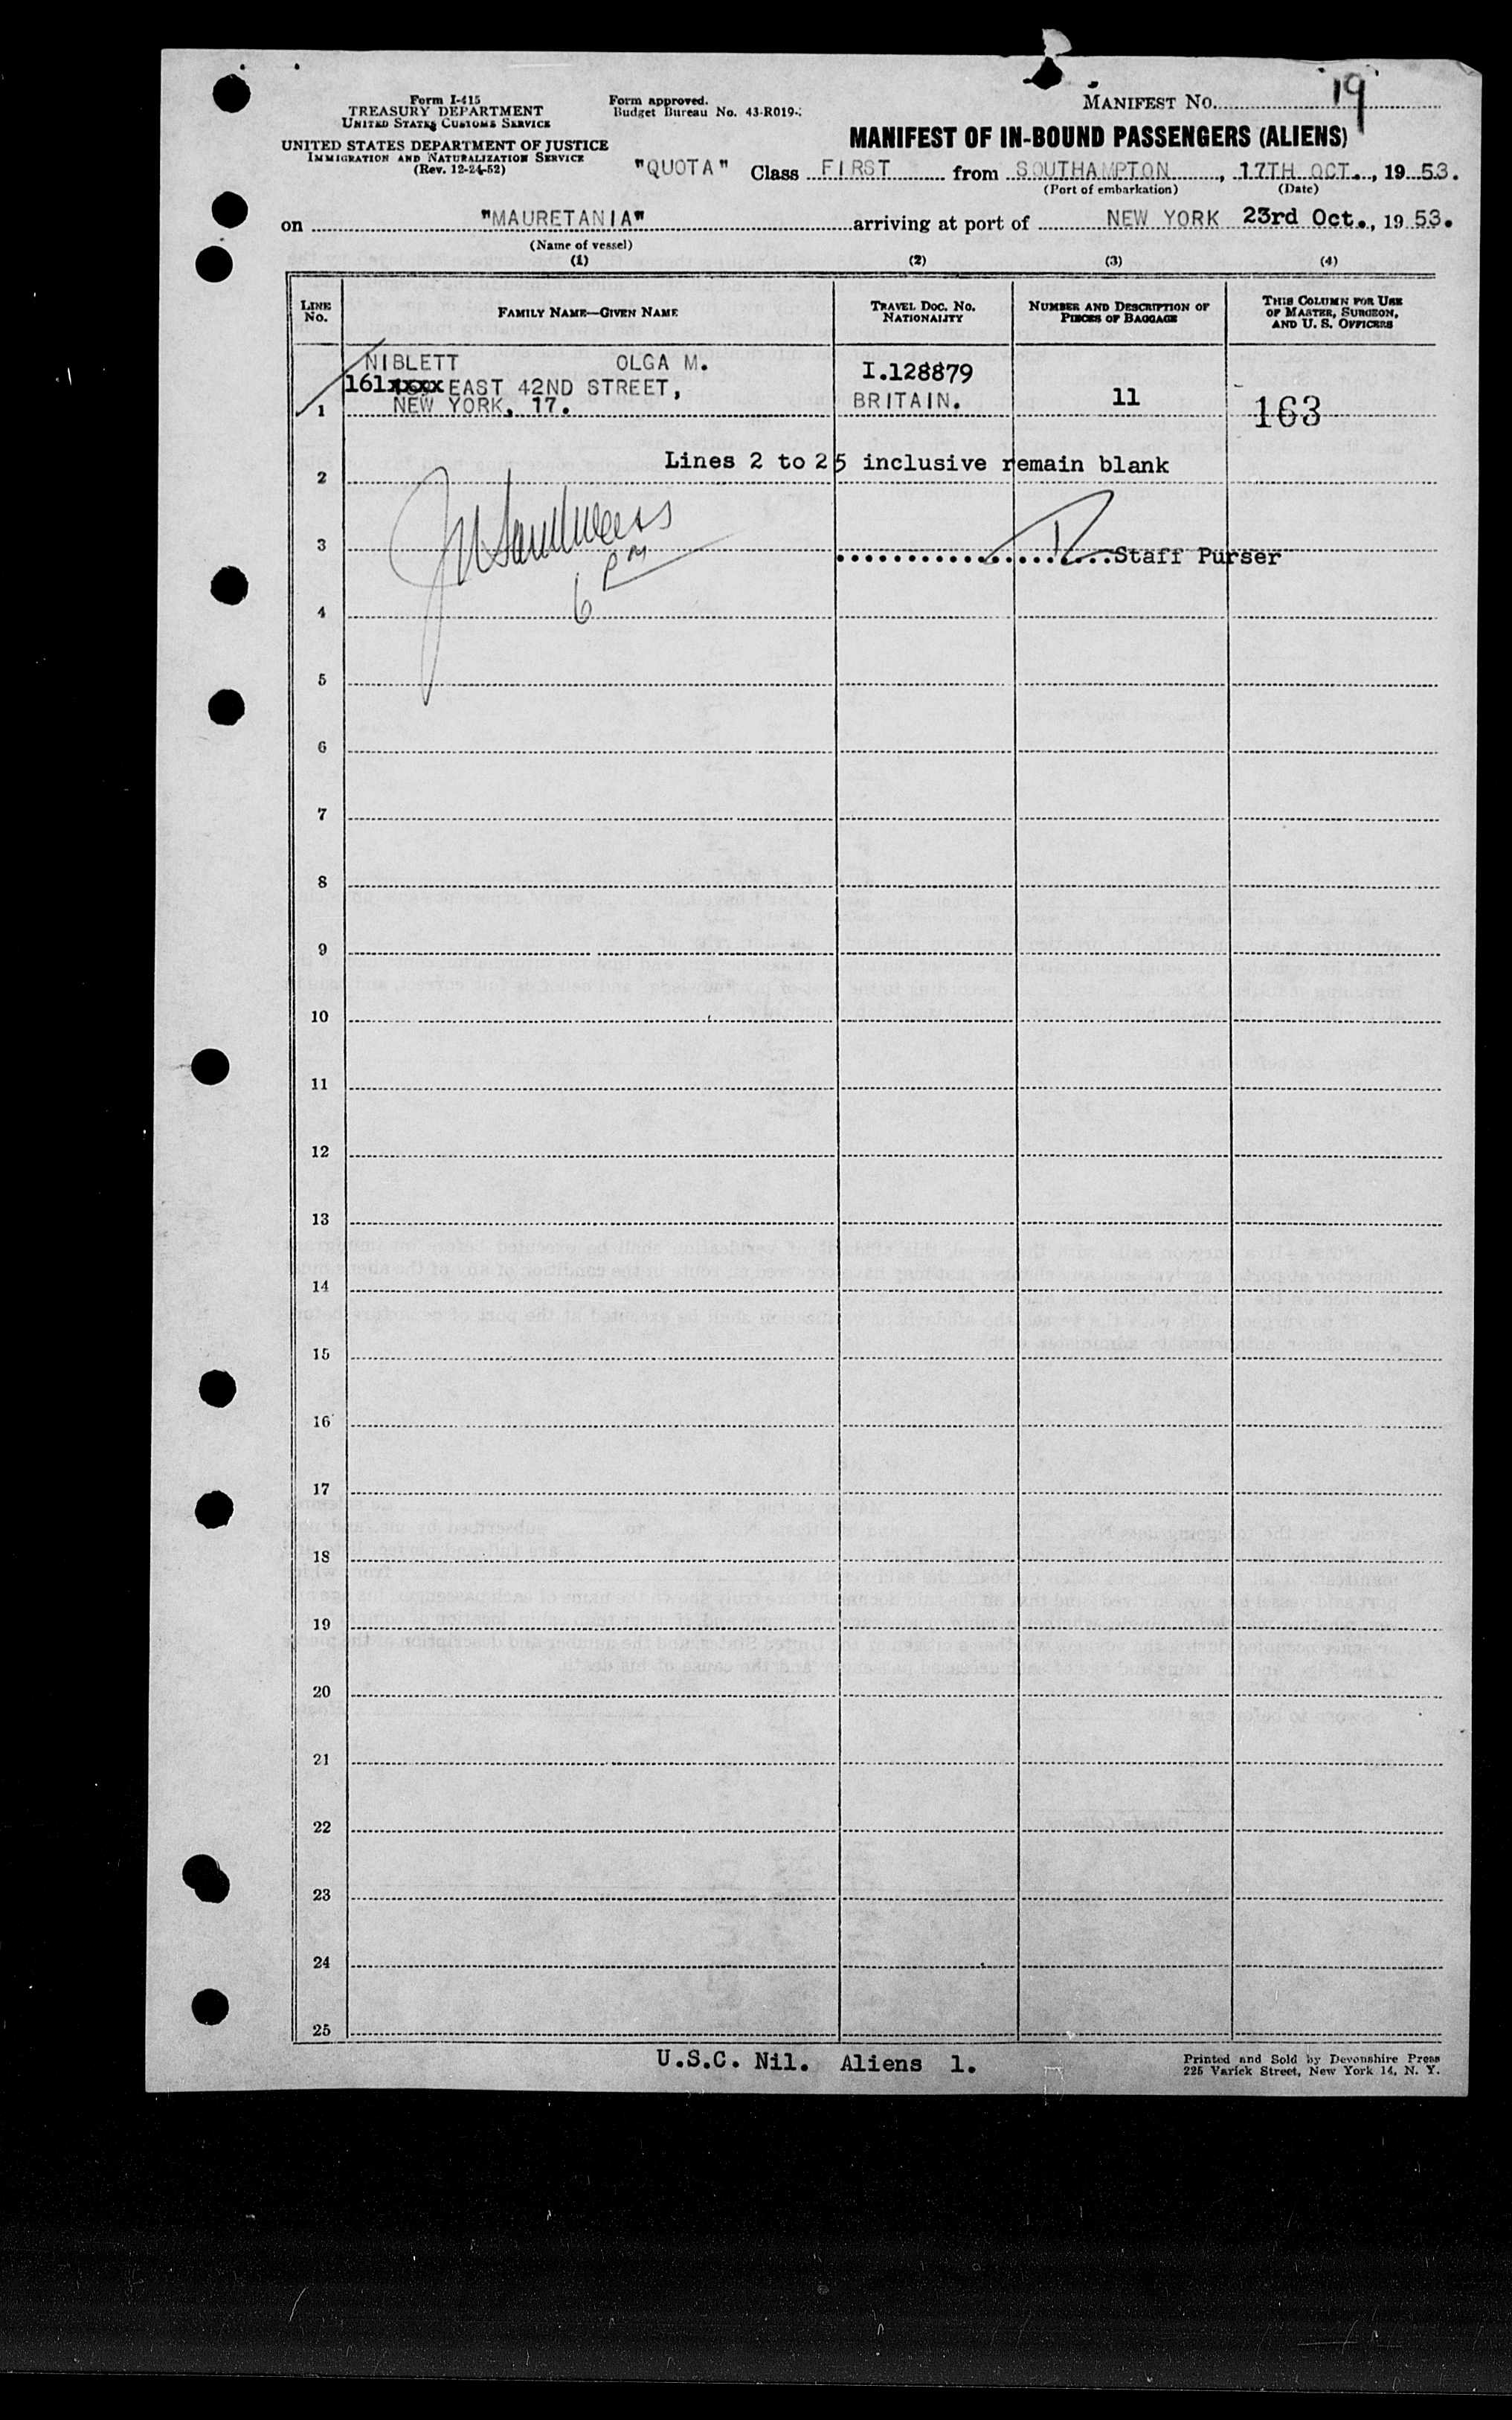 Form I-415
TREASURY DEPARTMENT
UNITED STATES CUSTOMS SERVICE
UNITED STATES DEPARTMENT OF JUSTICE
IMMIGRATION AND NATURALIZATION SERVICE
(Rev. 12-24-52)
Form approved.
Budget Bureau No. 43-R019-
MANIFEST NO. 19
MANIFEST OF IN-BOUND PASSENGERS (ALIENS)
"QUOTA" Class FIRST from SOUTHAMPTON, 17TH OCT., 19 53.
(Port of embarkation) (Date)
on "MAURETANIA" arriving at port of NEW YORK 23rd Oct., 19 53.
(Name of vessel)
(1) (2) (3) (4)
LINE No. FAMILY NAME—GIVEN NAME TRAVEL DOC. NO. NATIONALITY NUMBER AND DESCRIPTION OF PIECES OF BAGGAGE THIS COLUMN FOR USE OF MASTER, SURGEON, AND U. S. OFFICERS
NIBLETT OLGA M. I.128879
161xxxx EAST 42ND STREET,
1 NEW YORK, 17. BRITAIN. 11 163
Lines 2 to 25 inclusive remain blank
2
3 Staff Purser
6 PM
4
5
6
7
8
9
10
11
12
13
14
15
16
17
18
19
20
21
22
23
24
25
U.S.C. Nil. Aliens 1.
Printed and Sold by Devonshire Press
225 Varick Street, New York 14, N. Y.